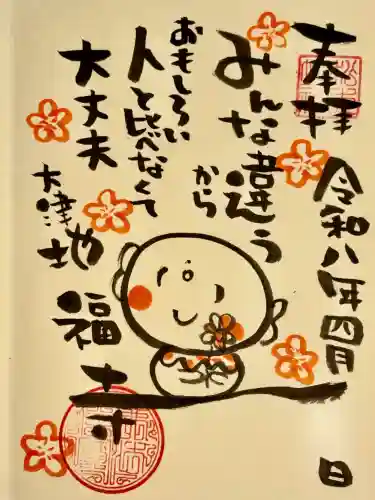 奉拝
令和八年四月 日
みんな違うから
おもしろい
人と比べなくて
大丈夫
大津 地福寺